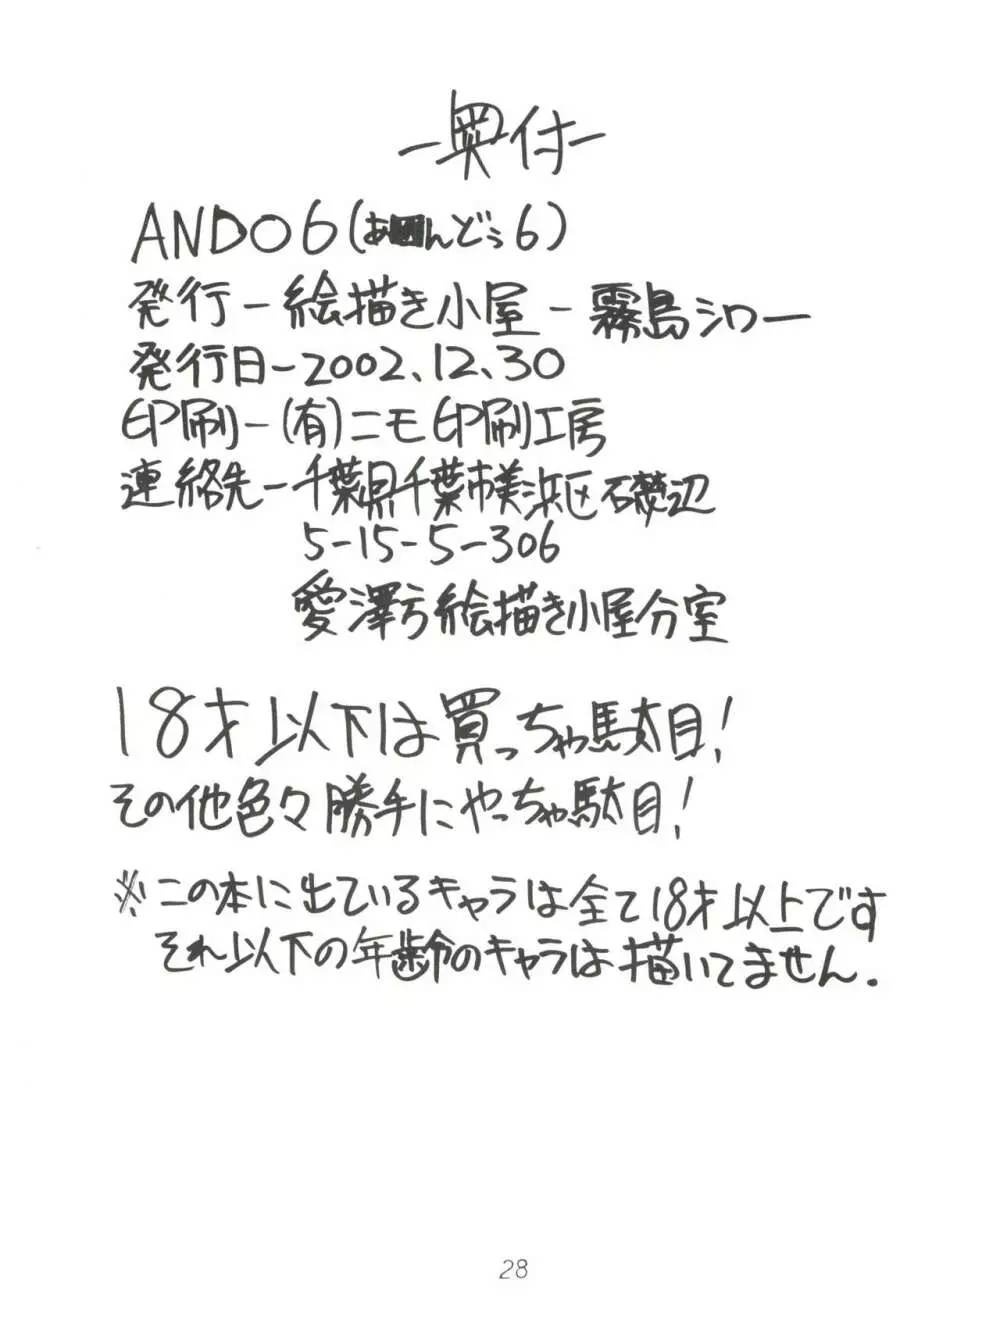 －奥付－
ANDO6(あんどぅ6)
発行－絵描き小屋－霧島シロー
発行日－2002.12.30
印刷－(有)ニモ印刷工房
連絡先－千葉県千葉市美浜区磯辺
5-15-5-306
愛澤方絵描き小屋分室
18才以下は買っちゃ駄目!
その他色々勝手にやっちゃ駄目!
※この本に出ているキャラは全て18才以上です
それ以下の年齢のキャラは描いてません.
28